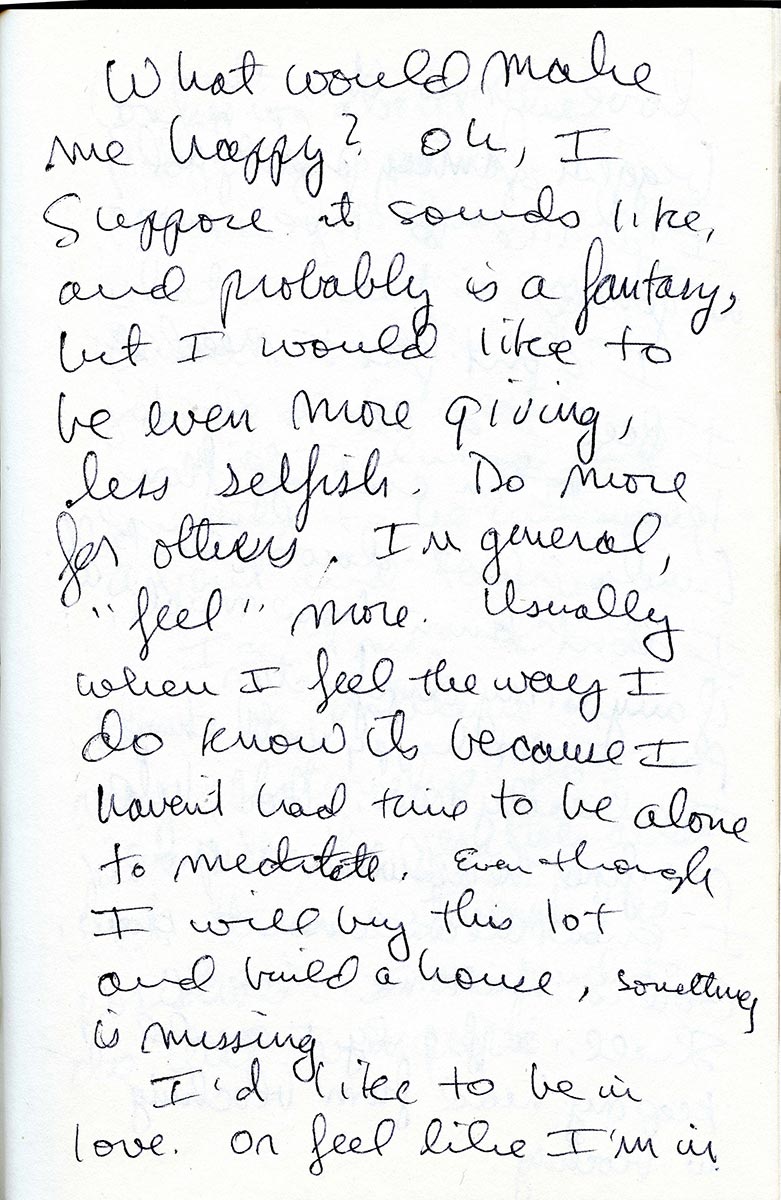 What would make
me happy? Oh, I
Suppose it sounds like,
and probably is a fantasy,
but I would like to
be even more giving,
less selfish. Do more
for others. In general,
"feel" more. Usually
when I feel the way I
do know its because I
haven't had time to be alone
to meditate. Even though
I will buy this lot
and build a house, something
is missing
I'd like to be in
love. Or feel like I'm in